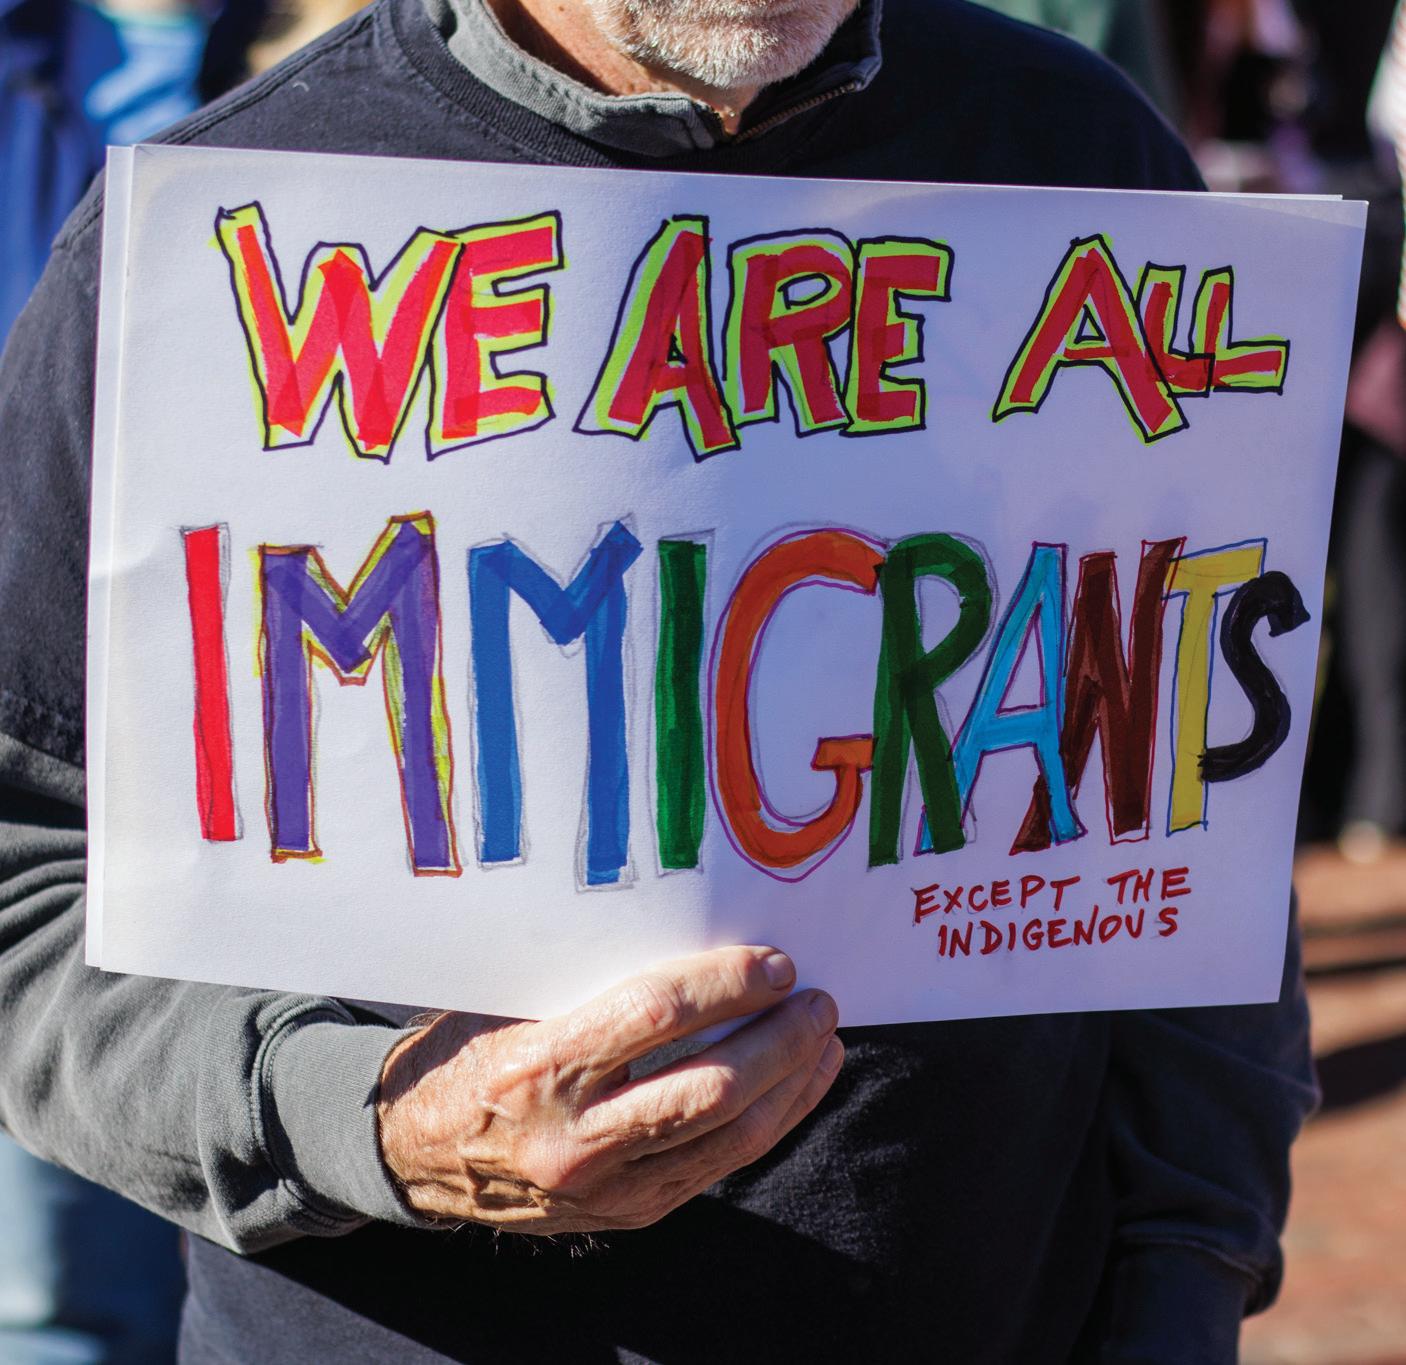 WE ARE ALL
IMMIGRANTS
EXCEPT THE
INDIGENOUS